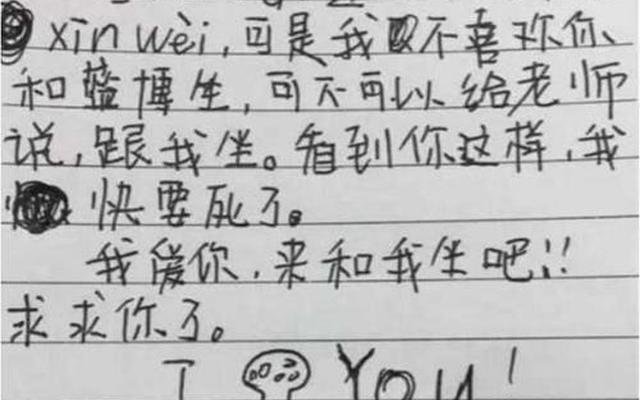 xin wèi,可是我不喜欢你
和蓝博生,可不可以给老师
说,跟我坐。看到你这样,我
快要死了。
我爱你,来和我坐吧!!
求求你了。
I You!